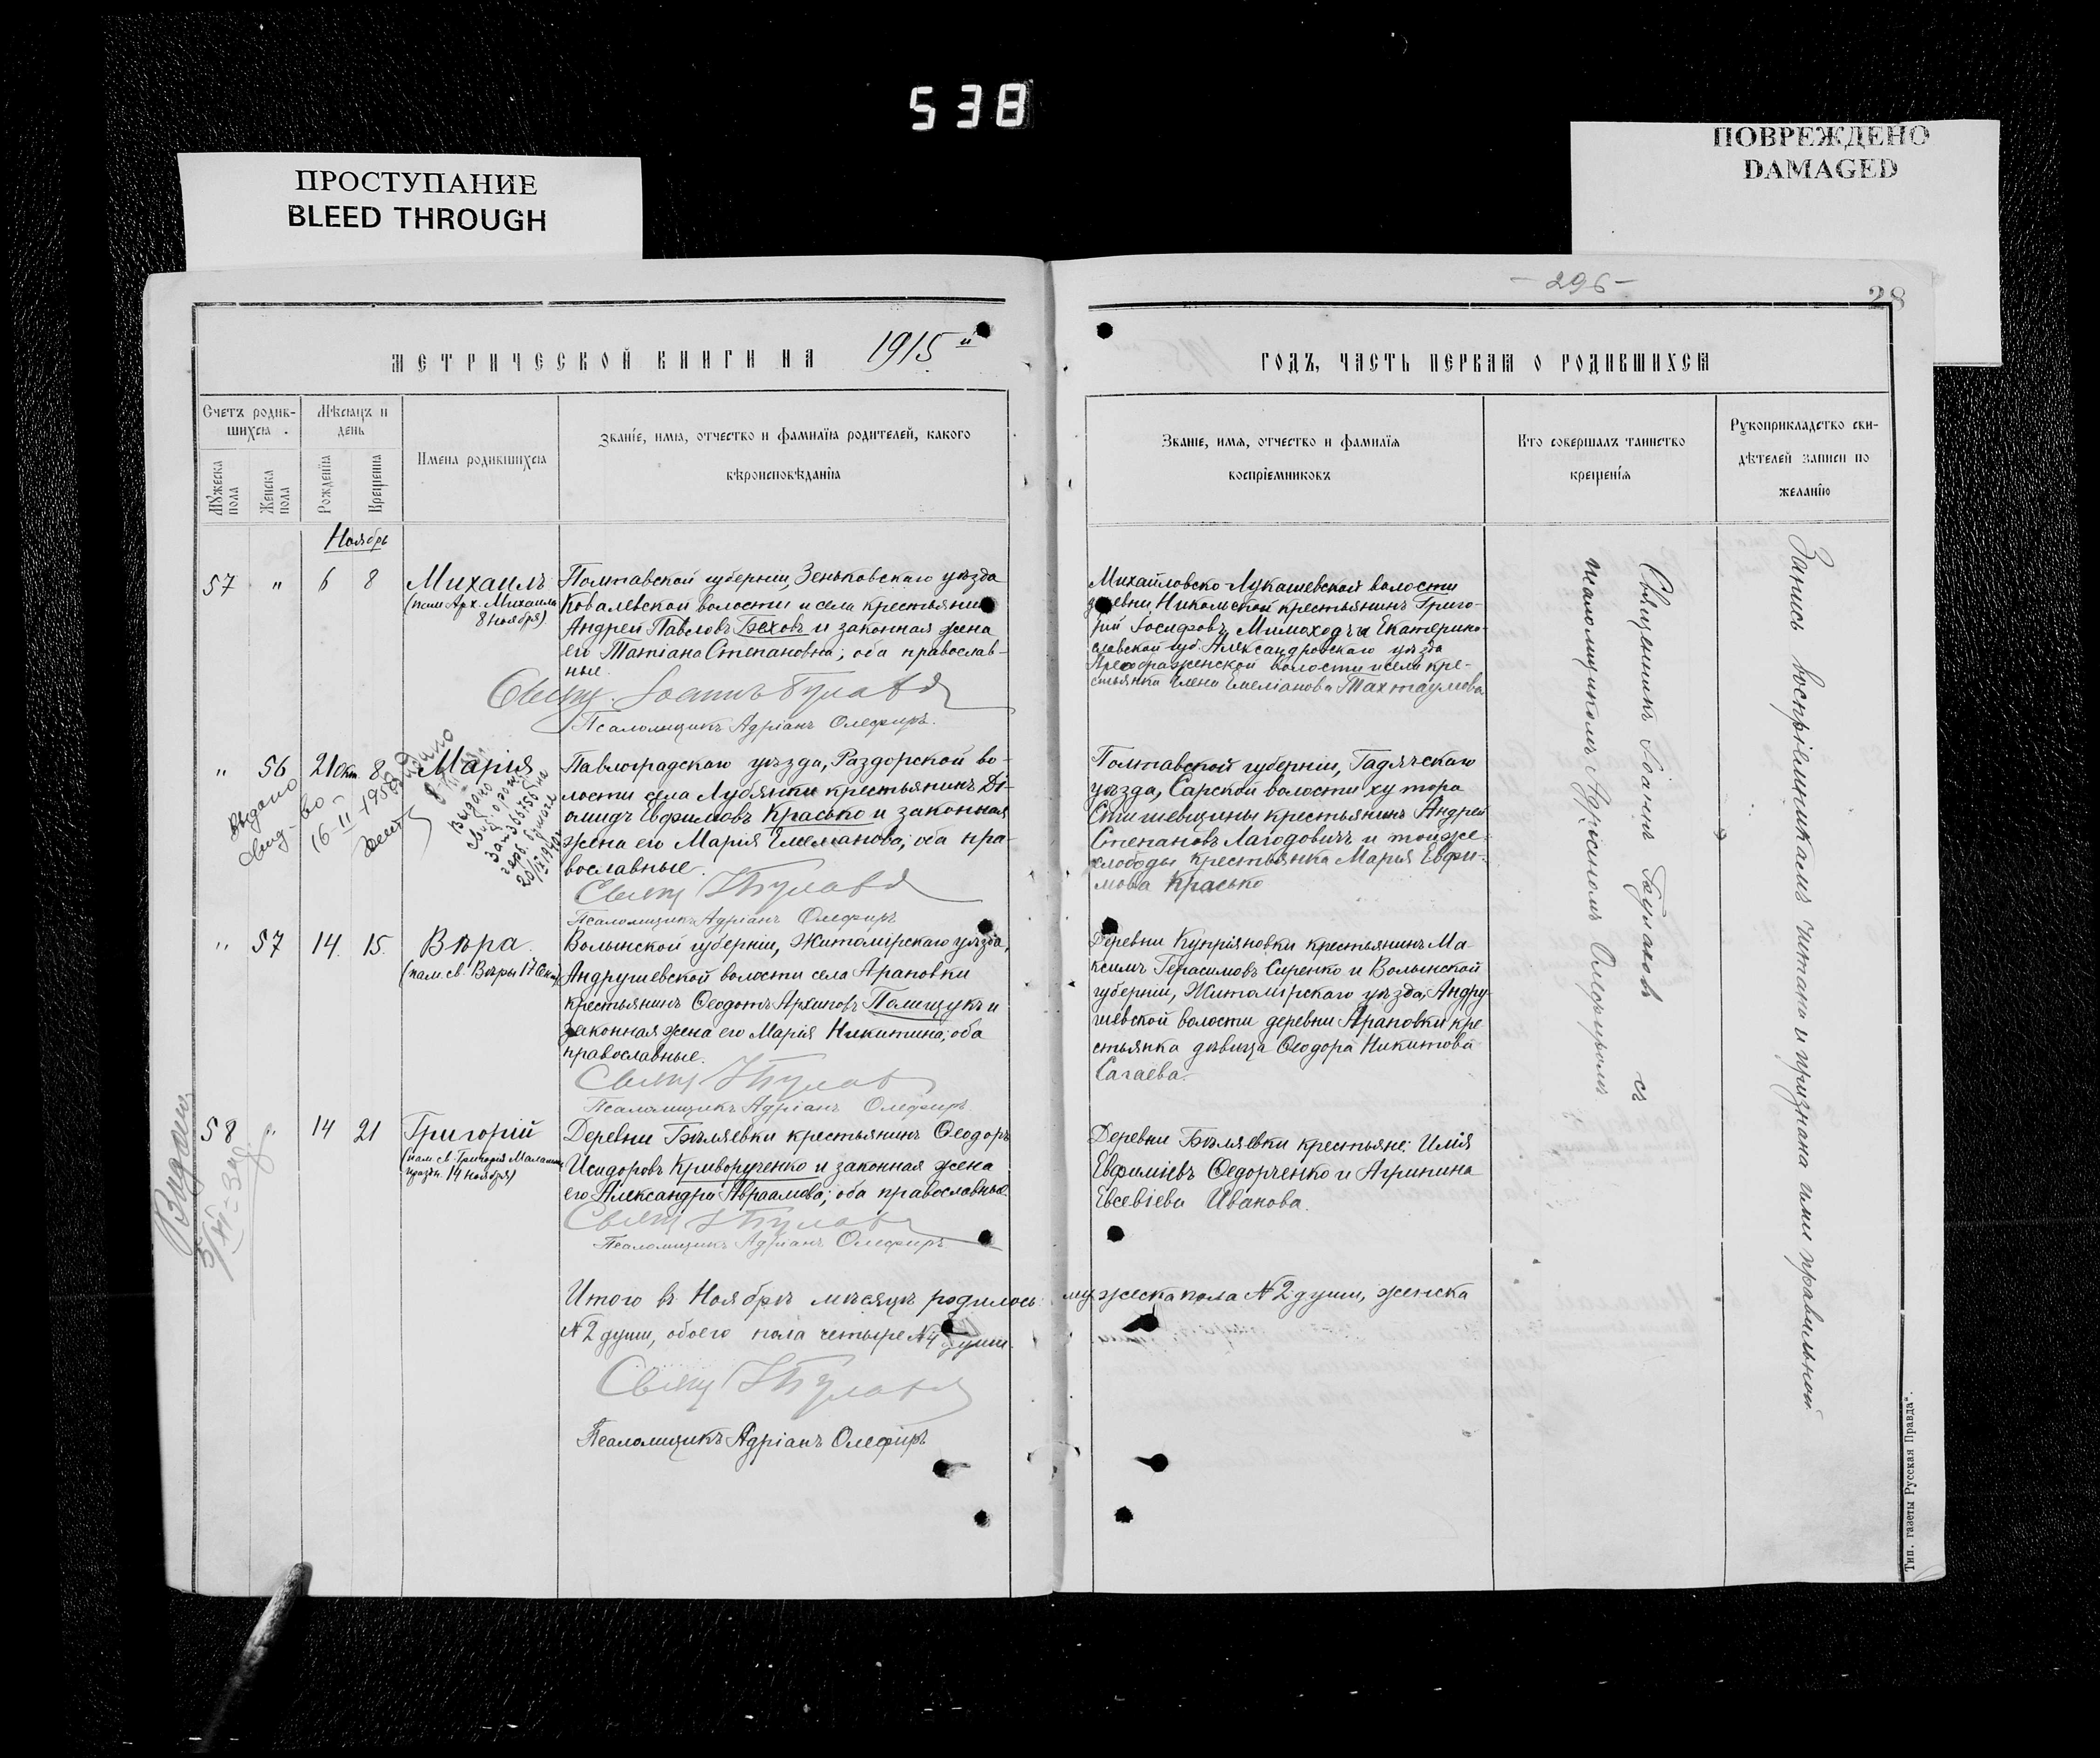 538
ПРОСТУПАНИЕ
BLEED THROUGH
ПОВРЕЖДЕНО
DAMAGED
МЕТРИЧЕСКОЙ КНИГИ НА 1915 й
Счетъ родив-
шихся.
Мѣсяцъ и
день
Мужеска
пола
Женска
пола
Рожденія
Крещенія
Имена родившихся
Званіе, имя, отчество и фамилія родителей, какого
вѣроисповѣданія
Ноябрь
57 " 6 8 Михаилъ
(пам. Арх. Михаила
8 ноября)
Полтавской губерніи, Зеньковскаго уѣзда
Ковалевской волости и села крестьянинъ
Андрей Павловъ Бѣховъ и законная жена
его Татіана Степановна; оба православ-
ные.
Свящ. Іоаннъ Булавъ
Псаломщикъ Адріанъ Олефиръ.
" 56 21 Окт. 8 Марія
Выдано
свид-во
16-II-1958
Выдано
20/IX 1940
Павлоградскаго уѣзда, Раздорской во-
лости села Лубянки крестьянинъ Ді-
омидъ Евфимовъ Красько и законная
жена его Марія Емеліанова; оба пра-
вославные.
Свящ. І Булавъ
Псаломщикъ Адріанъ Олефиръ
" 57 14. 15. Вѣра.
(пам. св. Вѣры 17 Сент.)
Волынской губерніи, Житомірскаго уѣзда,
Андрушевской волости села Арановки
крестьянинъ Ѳеодотъ Архиповъ Полищукъ и
законная жена его Марія Никитина; оба
православные.
Свящ. І Булавъ
Псаломщикъ Адріанъ Олефиръ
58 " 14 21 Григорій
14 ноября)
Видано
Деревни Бѣляевки крестьянинъ Ѳеодоръ
Исидоровъ Криворученко и законная жена
его Александра Авраамова; оба православные.
Свящ. І Булавъ
Псаломщикъ Адріанъ Олефиръ
Итого въ Ноябрѣ мѣсяцѣ родилось
№ 2 души, обоего пола четыре № 4 души.
Свящ. І Булавъ
Псаломщикъ Адріанъ Олефиръ
- 296 -
28
ГОДЪ, ЧАСТЬ ПЕРВАЯ О РОДИВШИХСЯ
Званіе, имя, отчество и фамилія
воспріемниковъ
Кто совершалъ таинство
крещенія
Рукоприкладство сви-
дѣтелей записи по
желанію
Михайловско-Лукашевской волости
деревни Никольской крестьянинъ Григо-
рій Іосифовъ Мимоходъ и Екатерино-
славской губ. Александровскаго уѣзда
Преображенской волости и села кре-
стьянка Елена Емеліанова Тахтаулова
Полтавской губерніи, Гадячскаго
уѣзда, Сарской волости хутора
крестьянинъ Андрей
Степановъ Лагодовичъ и той же
слободы крестьянка Марія Евфи-
мова Красько
Деревни Купріяновки крестьянинъ Ма-
ксимъ Герасимовъ Сиренко и Волынской
губерніи, Житомірскаго уѣзда, Андру-
шевской волости деревни Арановки кре-
стьянка дѣвица Ѳеодора Никитова
Сагаева.
Деревни Бѣляевки крестьяне: Илія
Евфиміевъ Федорченко и Агрипина
Евсевіева Иванова.
мужеска пола № 2 души, женска
Священникъ Іоаннъ Булавовъ съ
псаломщикомъ Адріаномъ Олефиромъ
Запись воспріемниками читана и признана ими правильной.
Тип. газеты Русская Правда".